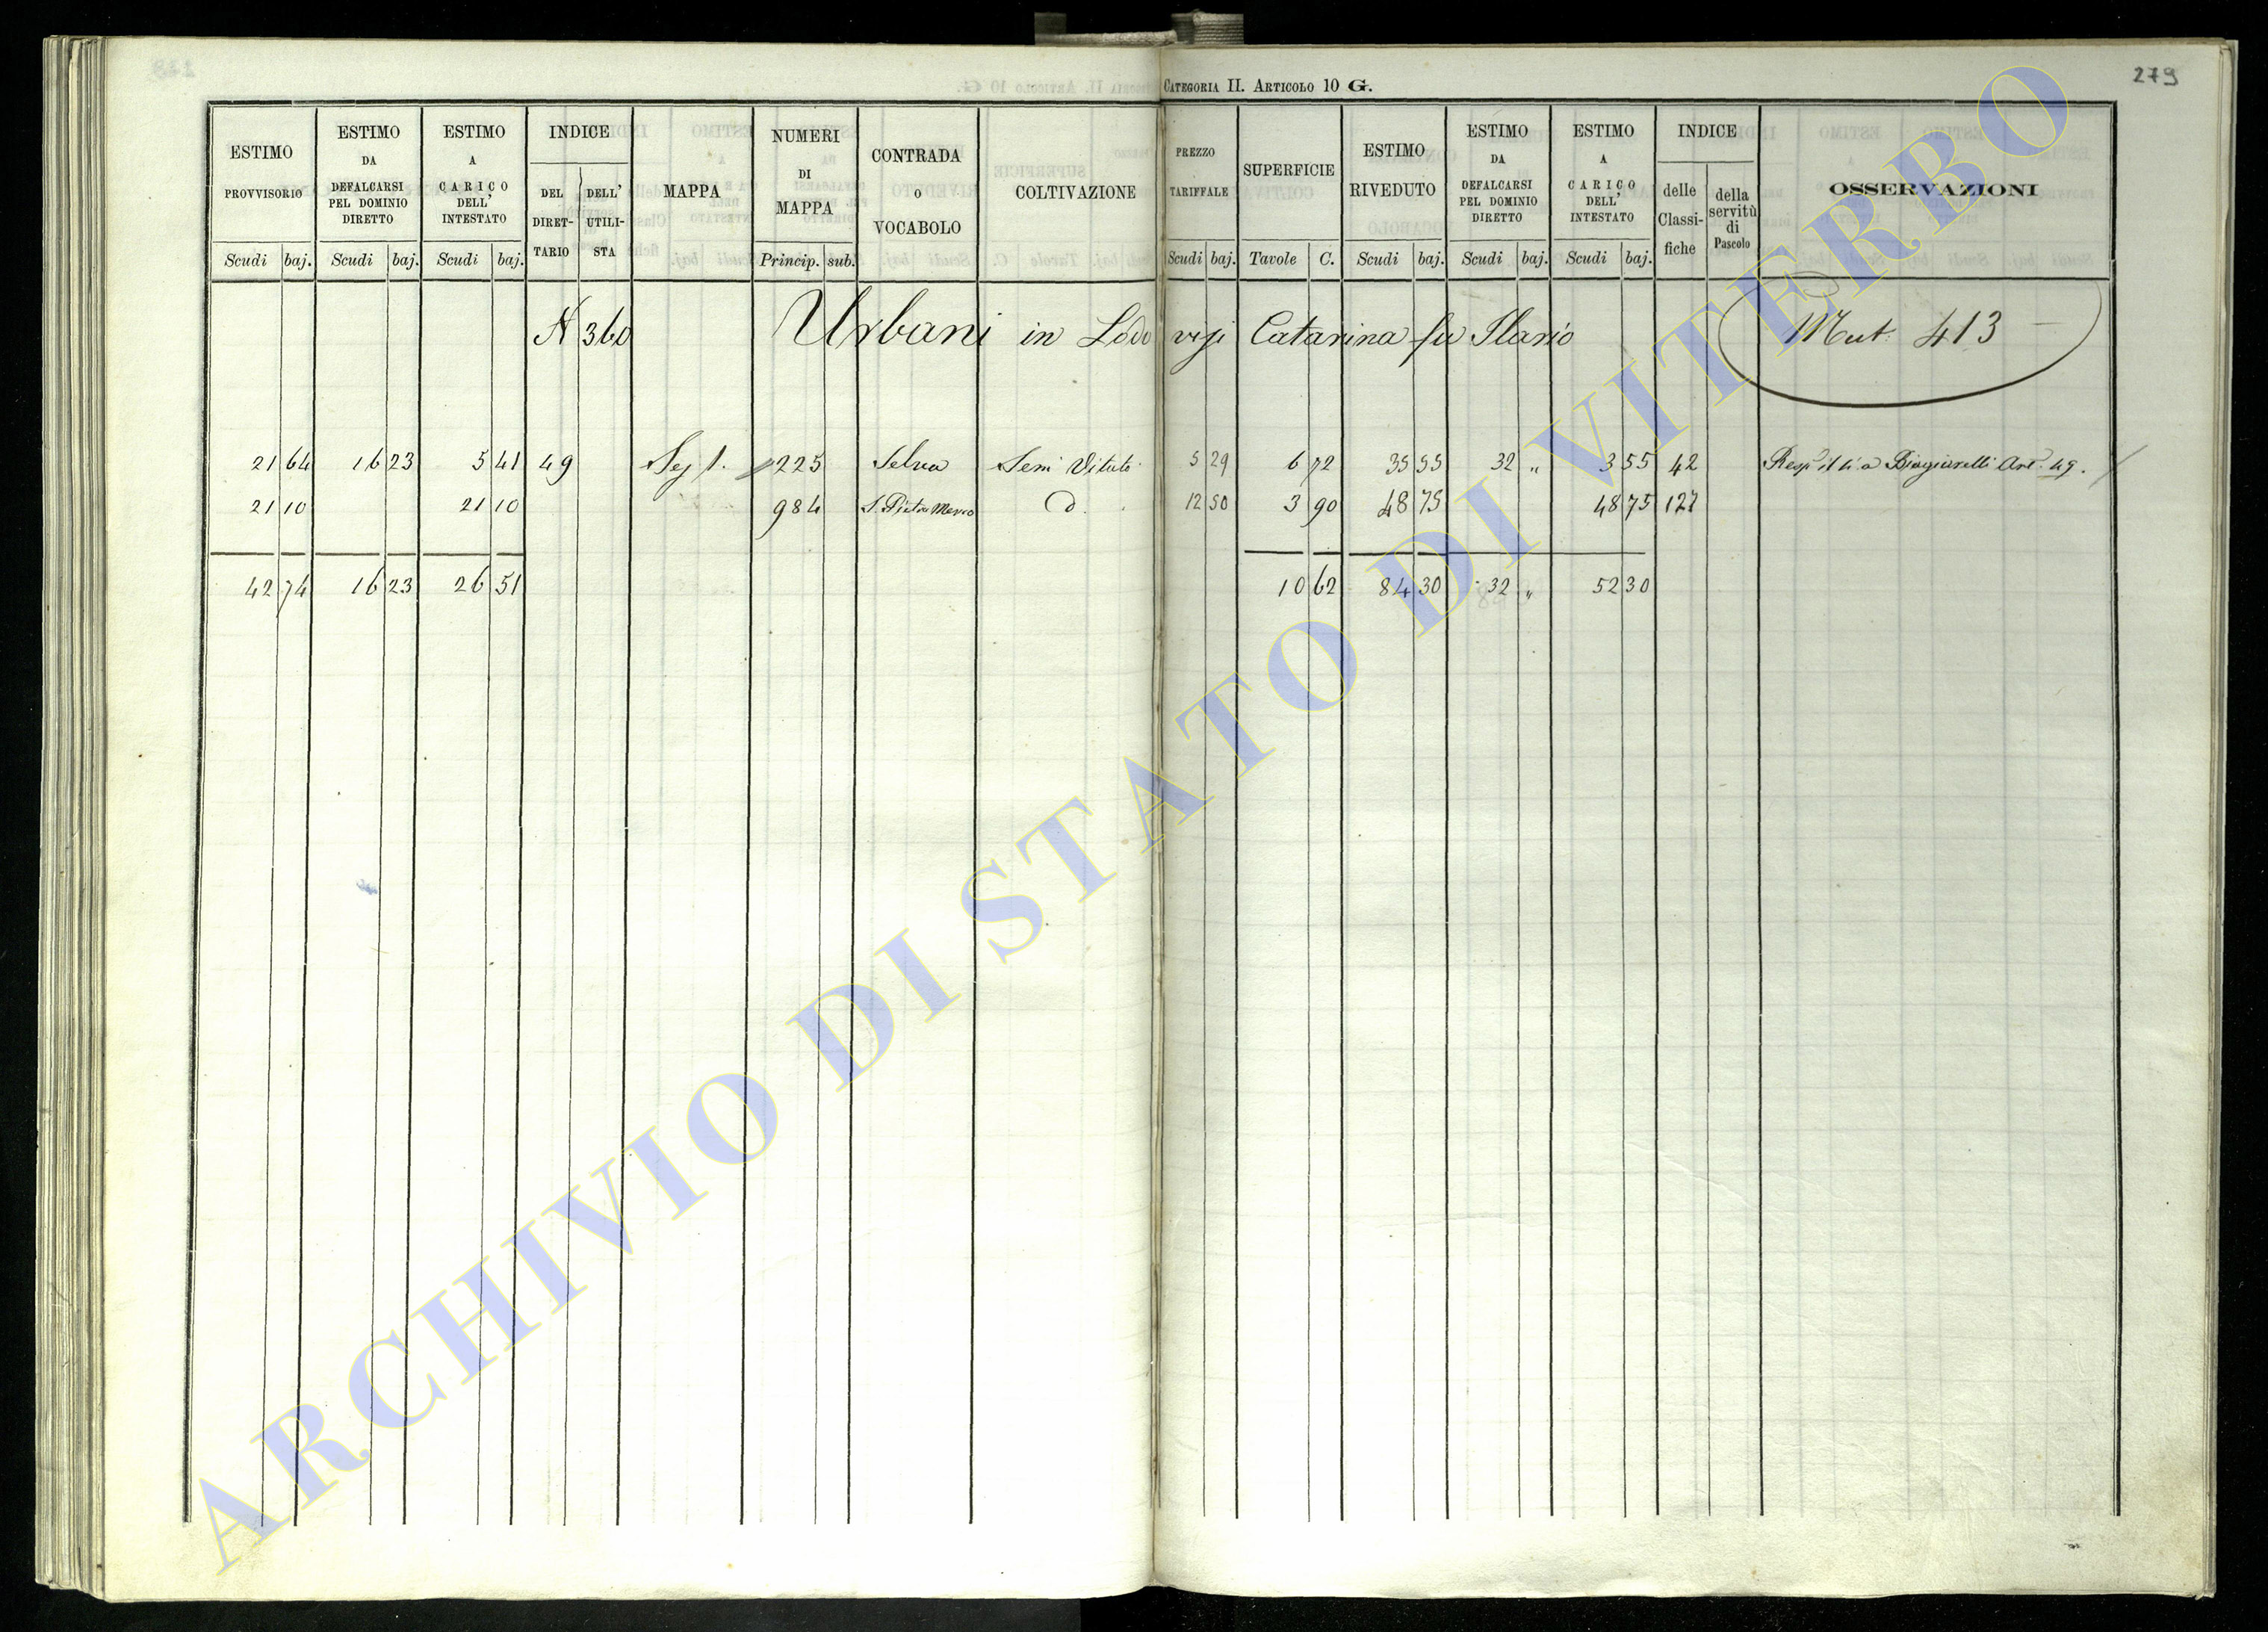 CATEGORIA II. ARTICOLO 10 G.
279
ESTIMO PROVVISORIO Scudi baj.
ESTIMO DA DEFALCARSI PEL DOMINIO DIRETTO Scudi baj.
ESTIMO A CARICO DELL' INTESTATO Scudi baj.
INDICE DEL DIRET-TARIO DELL' UTILI-STA
MAPPA
NUMERI DI MAPPA Princip. sub.
CONTRADA o VOCABOLO
COLTIVAZIONE
PREZZO TARIFFALE Scudi baj.
SUPERFICIE Tavole C.
ESTIMO RIVEDUTO Scudi baj.
ESTIMO DA DEFALCARSI PEL DOMINIO DIRETTO Scudi baj.
ESTIMO A CARICO DELL' INTESTATO Scudi baj.
INDICE delle Classi-fiche della servitù di Pascolo
OSSERVAZIONI
N 360 Urbani in Lodovisi Catarina fu Ilario Mut. 413
21 64 16 23 5 41 49 Sez 1. 225 Selva Sem Vitato 5 29 6 72 35 55 32 " 3 55 42 a Biagiarelli Art. 49.
21 10 21 10 984 S. Pietro d. 12 50 3 90 48 75 48 75 127
42 74 16 23 26 51 10 62 84 30 32 " 52 30
ARCHIVIO DI STATO DI VITERBO